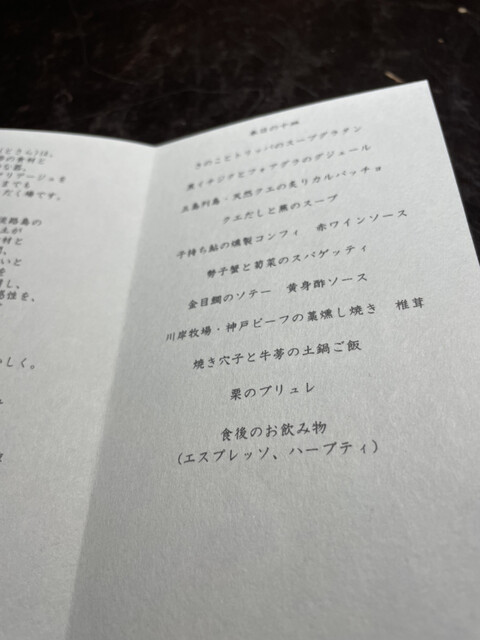 は、
の食材と
な器、
マリアージュを
までも
だく場です。
淡路島の
土が
材と
いと
を
し、
感性を、
しく。
本日の十皿
きのことトリッパのスープグラタン
黒イチジクとフォアグラのデジュール
五島列島・天然クエの炙りカルパッチョ
クエだしと蕪のスープ
子持ち鮎の燻製コンフィ 赤ワインソース
勢子蟹と菊菜のスパゲッティ
金目鯛のソテー 黄身酢ソース
川岸牧場・神戸ビーフの藁燻し焼き 椎茸
焼き穴子と牛蒡の土鍋ご飯
栗のブリュレ
食後のお飲み物
(エスプレッソ、ハーブティ)